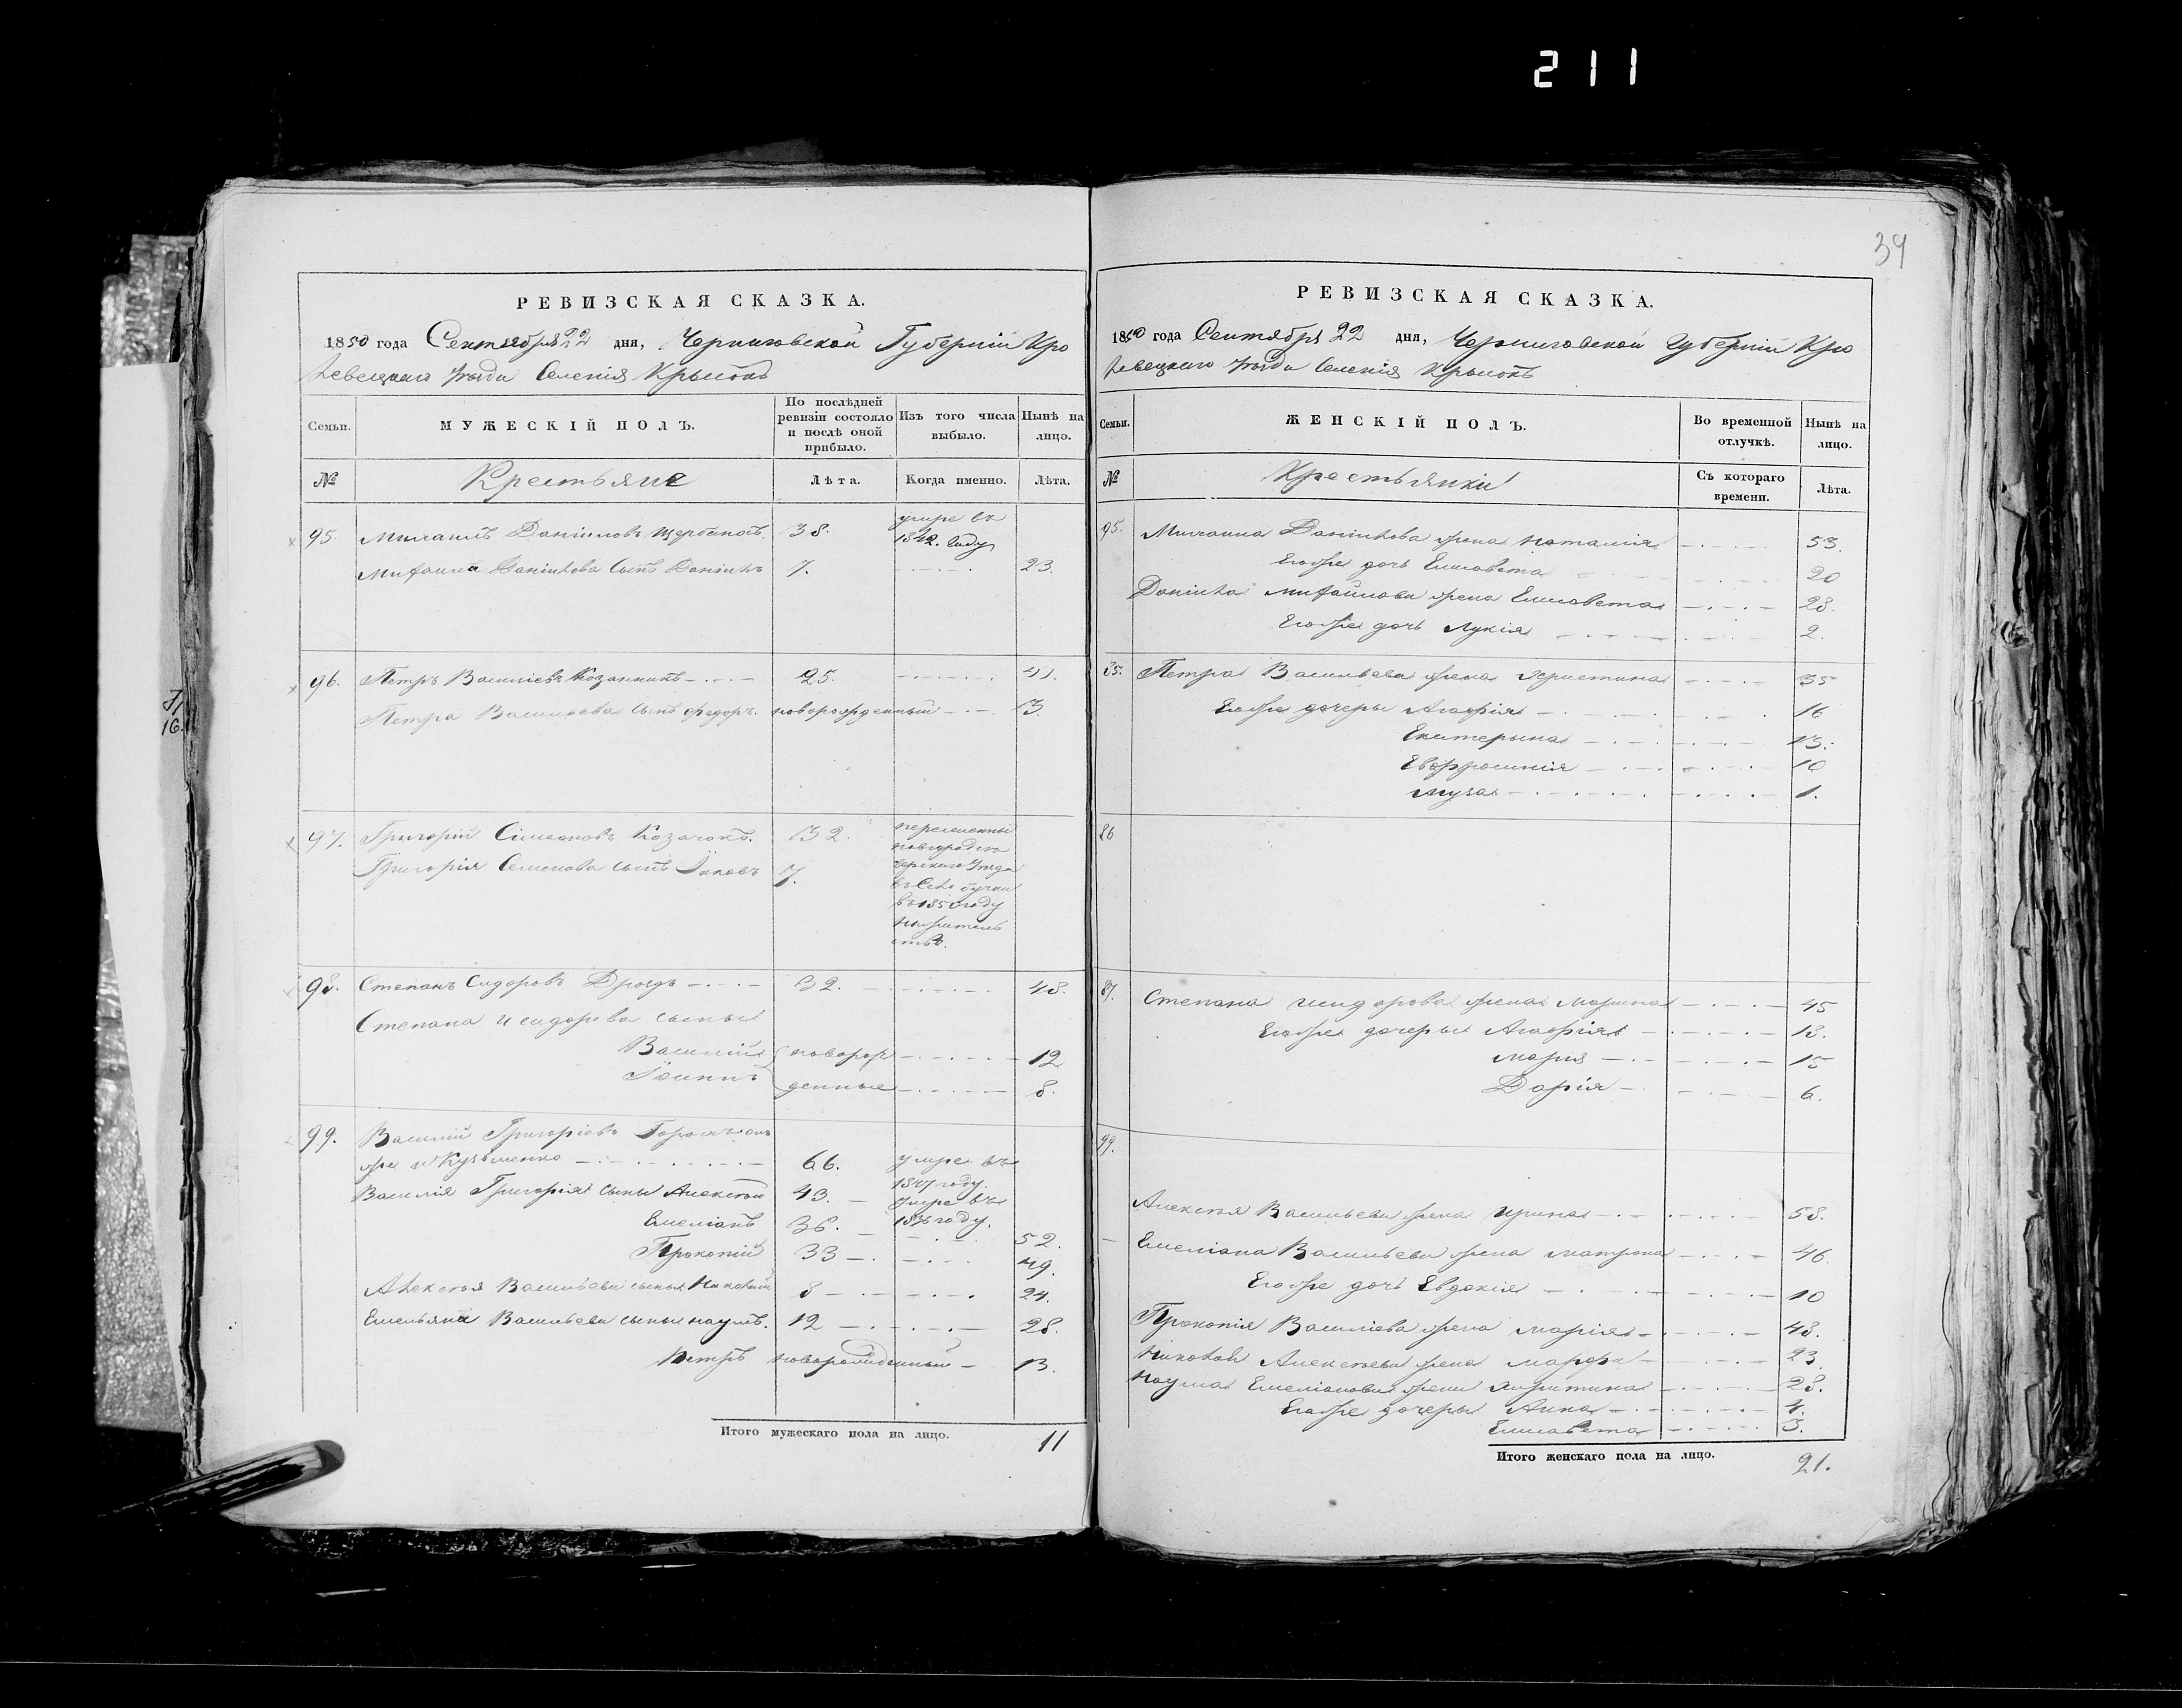 211
34
РЕВИЗСКАЯ СКАЗКА.
1850 года Сентября 22 дня, Черниговской Губерніи Кро
левецкаго уѣзда Селенія
Семьи.
МУЖЕСКІЙ ПОЛЪ.
По послѣдней ревизіи состояло и послѣ оной прибыло.
Изъ того числа выбыло.
Нынѣ на лицо.
№
Крестьяне
Лѣта.
Когда именно.
Лѣта.
95. Михаилъ Даніиловъ 38. умре въ
1842. году
Михаила сынъ Даніилъ 7. 23.
96. Петръ Василіевъ 25. 41.
Петра Васильева сынъ Федоръ новорожденный 13
97. Григорій Сімеоновъ Козачокъ. 32.
Григорія Семенова сынъ Іяковъ 7.
въ 1850 году
98. Степанъ Сидоровъ Дроздъ 32. 48.
Степана Исидорова сыны
Василій новорож 12
Іоаннъ денные 8.
99. Василій Григоріевъ онъ
же и Кузьменко 66. умре въ
1847 году.
Василія Григорія сыны Алексѣй 43. умре въ
1836 году.
Емеліанъ 36. 52.
Прокопій 33 49.
Алексѣя Васильева сынъ Николай 8 24.
Емельяна Васильева сыны Наумъ. 12 28.
Петръ новорожденный 13.
Итого мужескаго пола на лицо. 11
РЕВИЗСКАЯ СКАЗКА.
1850 года Сентября 22 дня, Черниговской Губерніи Кро
левецкаго уѣзда Селенія
Семьи.
ЖЕНСКІЙ ПОЛЪ.
Во временной отлучкѣ.
Нынѣ на лицо.
№
Крестьянки
Съ котораго времени.
Лѣта.
95. жена Наталія 53.
Егоже дочь Елисавета 20
Даніила Михайлова жена Елисавета 28.
Егоже дочь Лукія 2.
Петра Васильева жена Христина 35
Егоже дочеры Агафія 16
Екатерына 13.
Евфросинія 10
1.
86
87. Степана Исидорова жена Марина 45
Егоже дочеры Агафія 18.
Марія 15
Дарія 6.
99.
Алексѣя Васильева жена Ирина 58.
Емеліана Васильева жена Матрона 46.
Егоже дочь Евдокія 10
Прокопія Василіева жена Марія 48.
Николая Алексѣева жена Марфа 23.
Наума Емеліанова жена Христина 28.
Егоже дочеры Анна 4.
Елисавета 3.
Итого женскаго пола на лицо. 21.